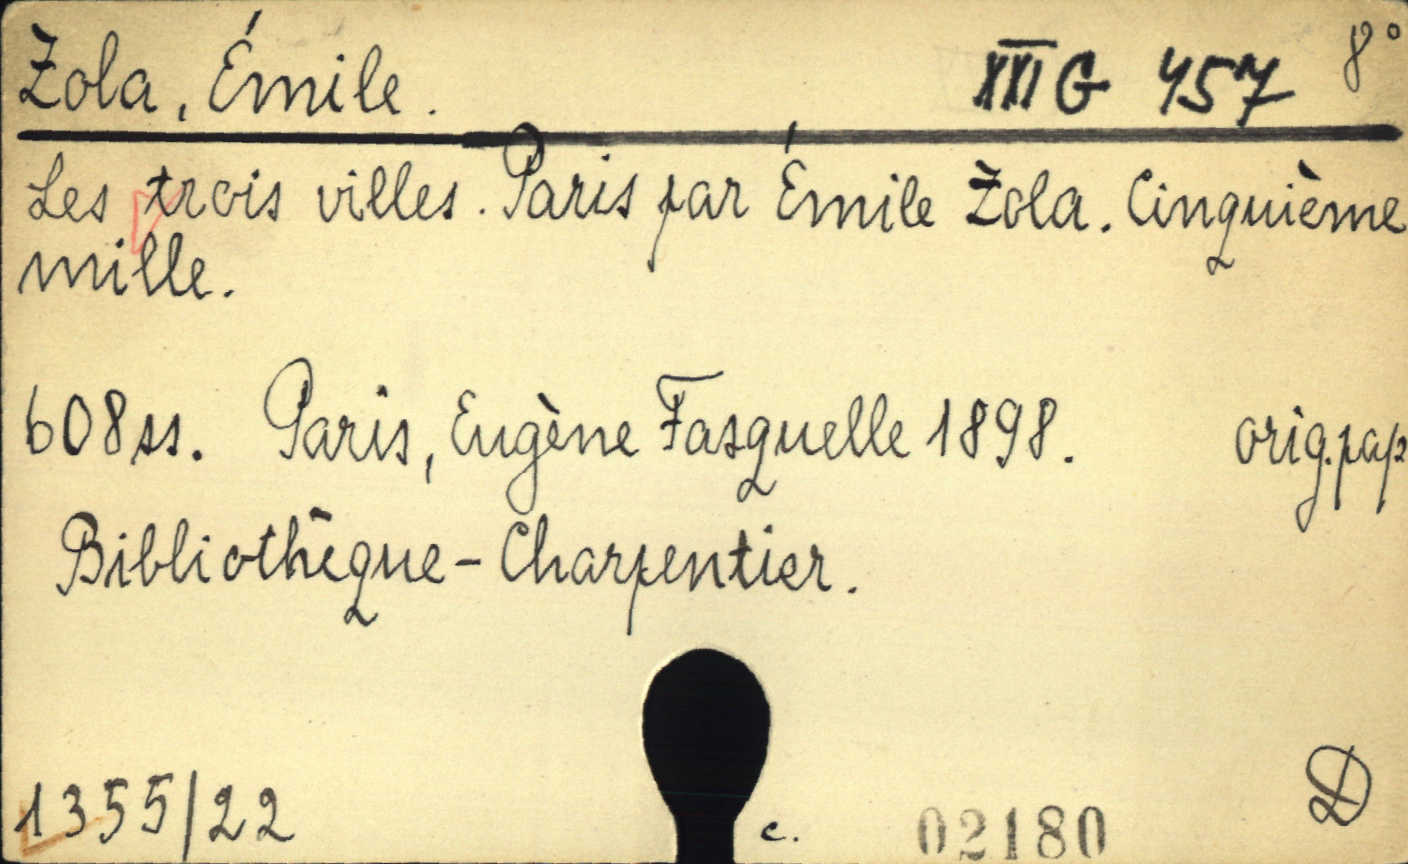 Zola, Émile. XXI G 457 8°
Les trois villes. Paris par Émile Zola. Cinquième
mille.
608 ss. Paris, Eugène Fasquelle 1898. orig. pap
Bibliothèque-Charpentier.
1355/22 c. 02180 D